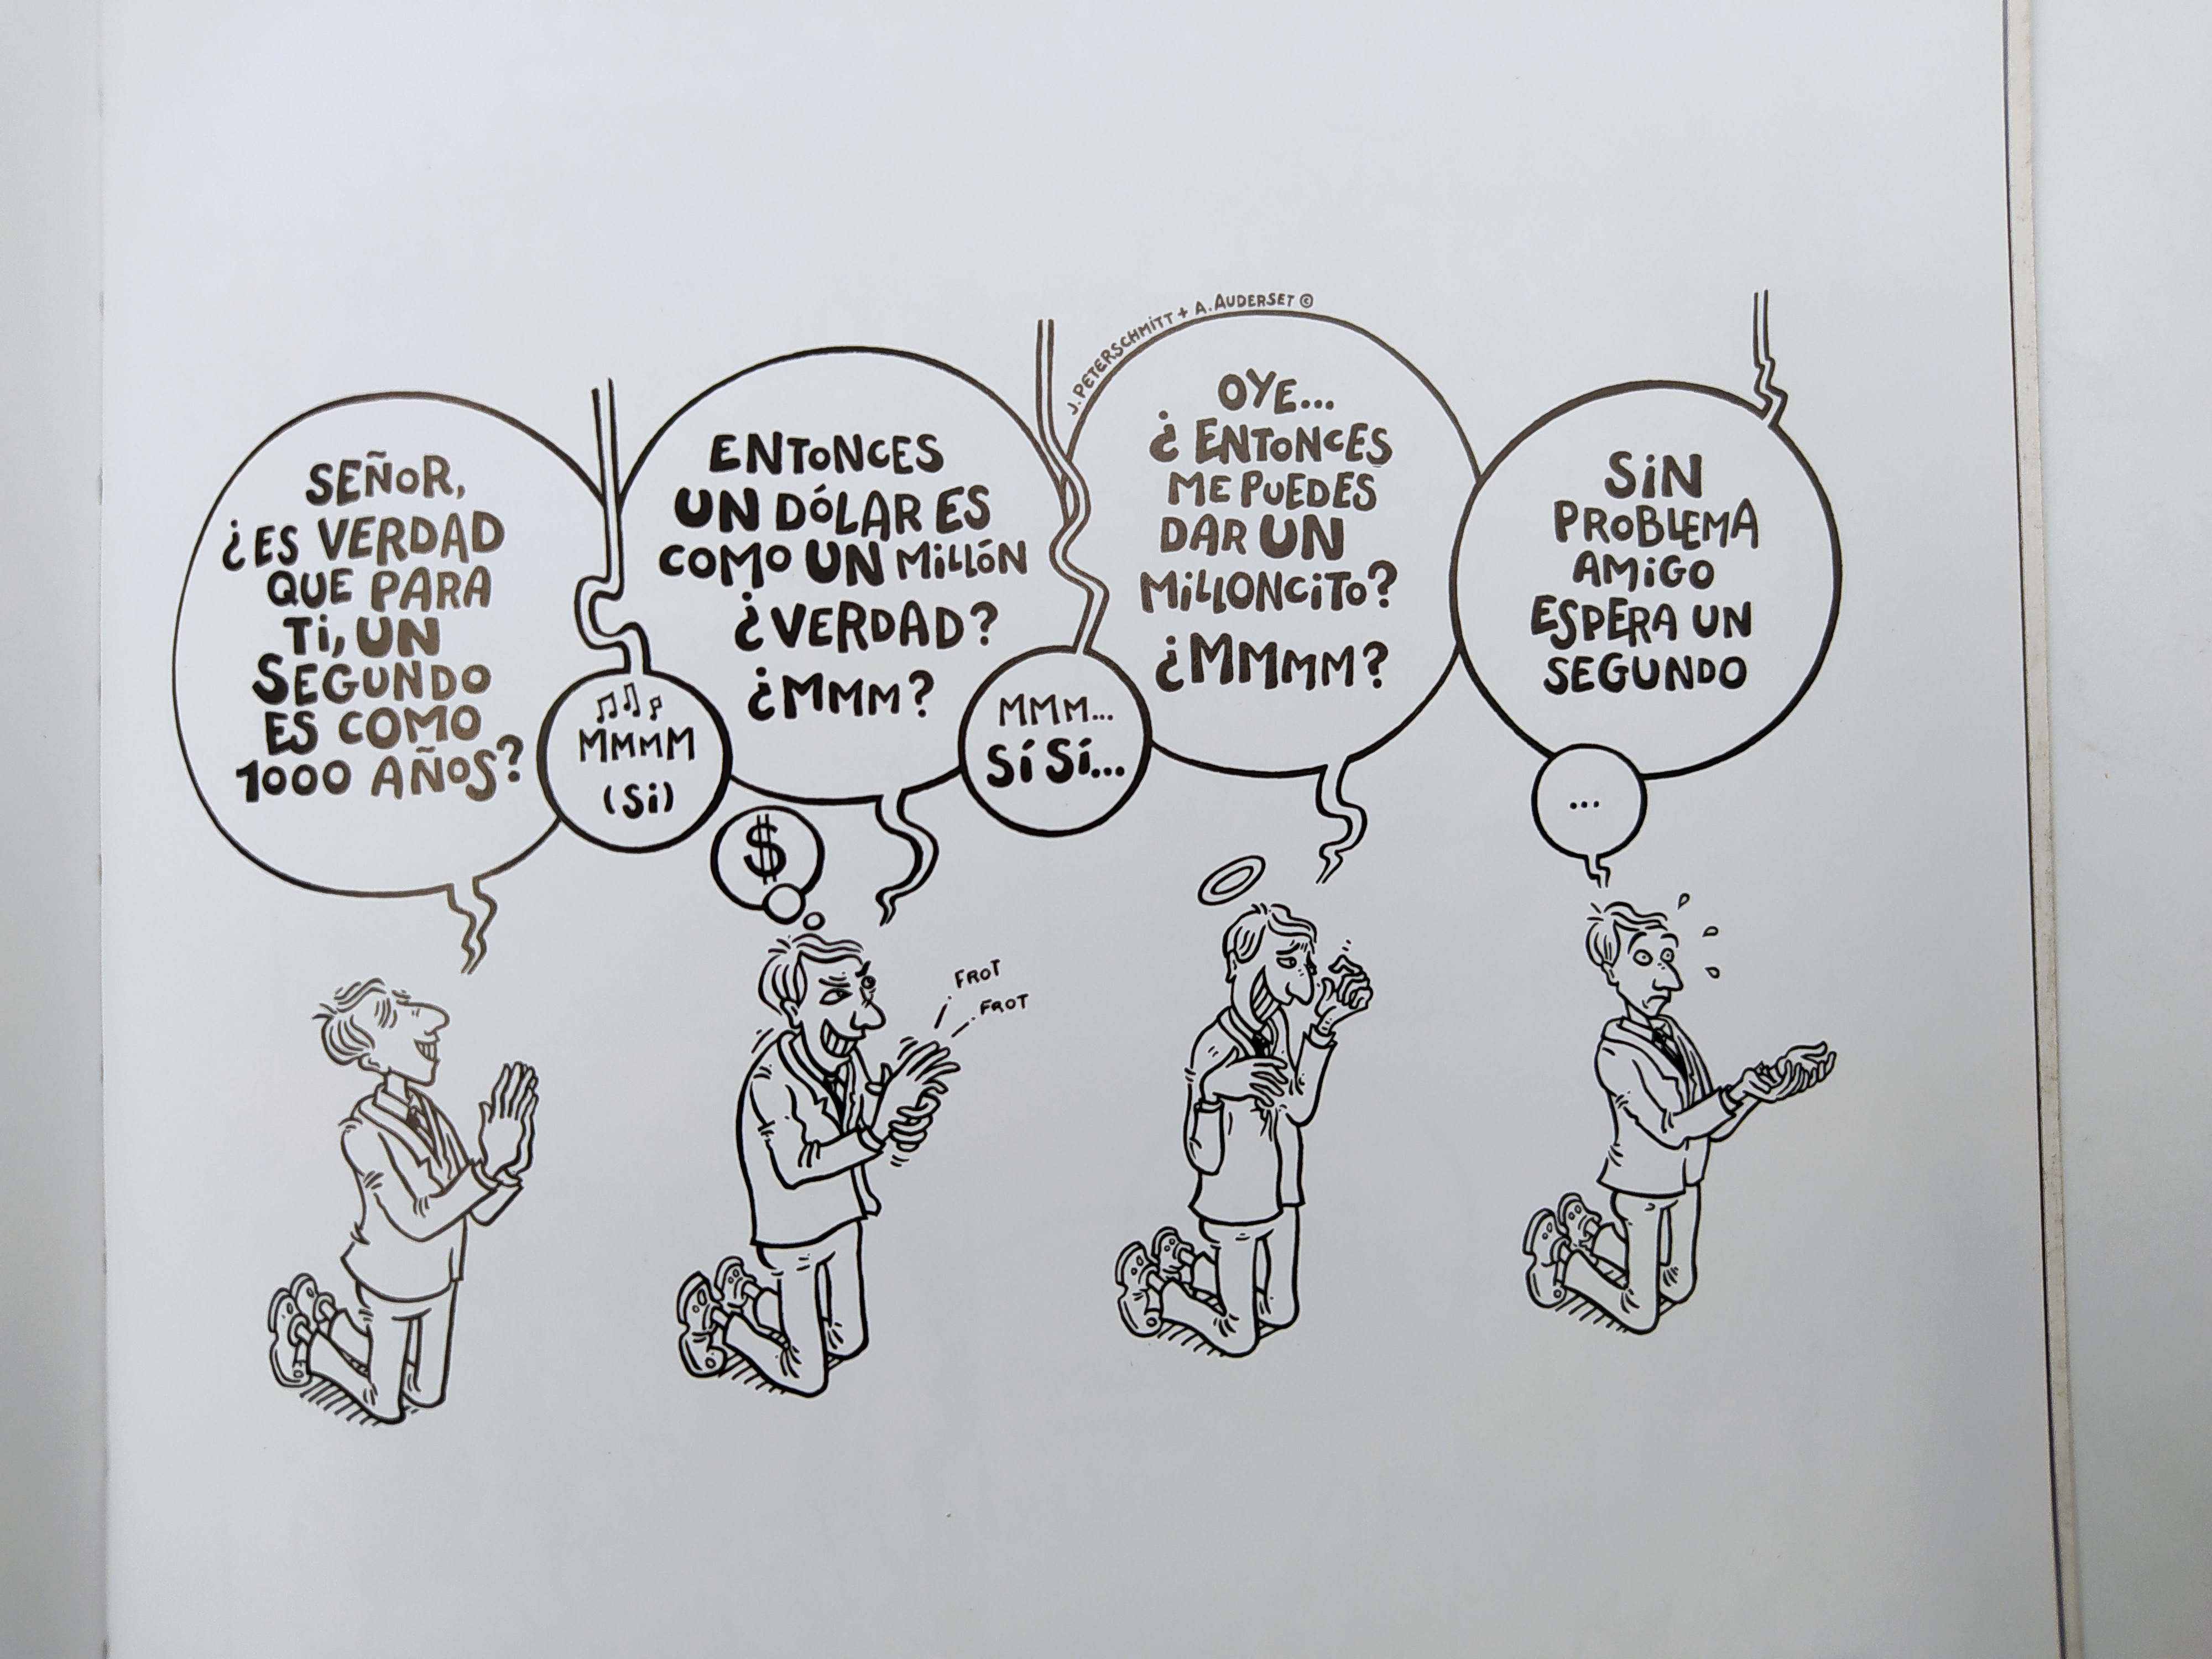 SEÑOR,
¿ES VERDAD
QUE PARA
TI, UN
SEGUNDO
ES COMO
1000 AÑOS?
MMMM
(SI)
ENTONCES
UN DÓLAR ES
COMO UN MILLÓN
¿VERDAD?
¿MMM?
$
FROT
FROT
MMM...
SÍ SÍ...
J. PETERSCHMITT + A. AUDERSET ©
OYE...
¿ENTONCES
ME PUEDES
DAR UN
MILLONCITO?
¿MMMM?
SIN
PROBLEMA
AMIGO
ESPERA UN
SEGUNDO
...